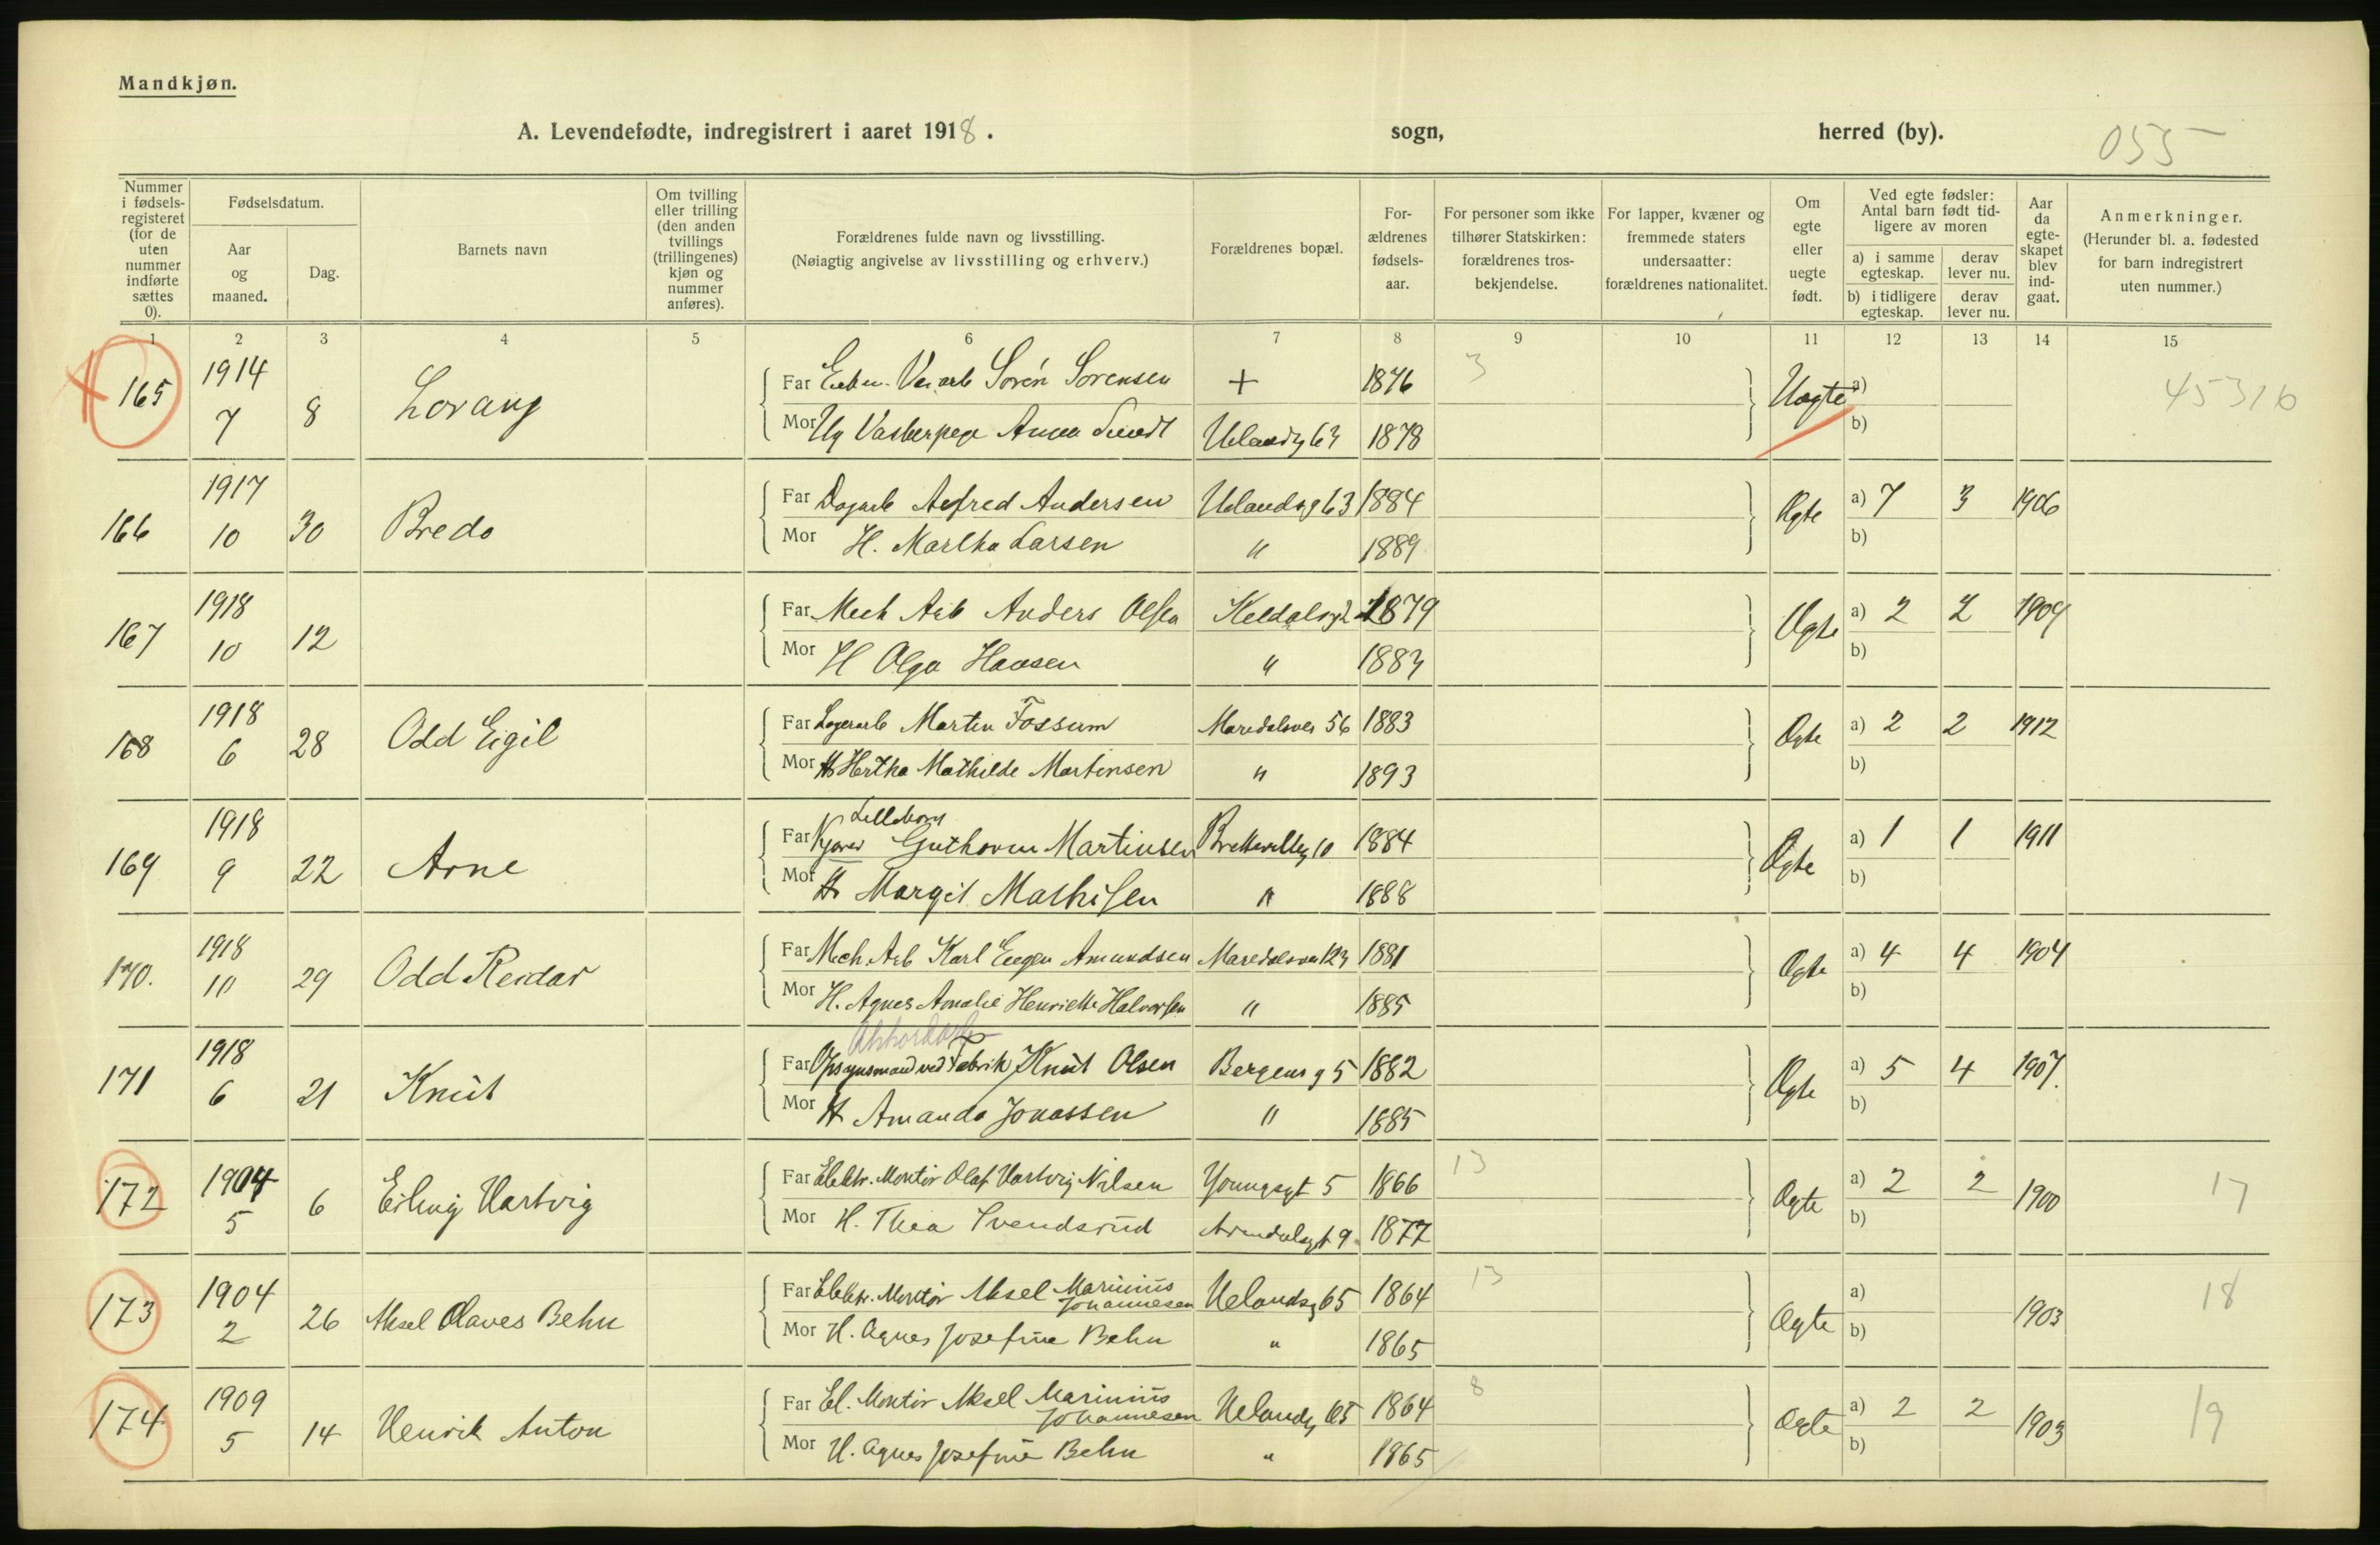 Mandkjøn.
A. Levendefødte, indregistrert i aaret 1918. sogn, herred (by). 055
Nummer i fødsels-registeret (for de uten nummer indførte sættes 0).
Fødselsdatum.
Aar og maaned.
Dag.
Barnets navn
Om tvilling eller trilling (den anden tvillings (trillingenes) kjøn og nummer anføres).
Forældrenes fulde navn og livsstilling.
(Nøiagtig angivelse av livsstilling og erhverv.)
Forældrenes bopæl.
For-ældrenes fødsels-aar.
For personer som ikke tilhører Statskirken: forældrenes tros-bekjendelse.
For lapper, kvæner og fremmede staters undersaatter: forældrenes nationalitet.
Om egte eller uegte født.
Ved egte fødsler: Antal barn født tid-ligere av moren
a) i samme egteskap.
derav lever nu.
b) i tidligere egteskap.
derav lever nu.
Aar da egte-skapet blev ind-gaat.
Anmerkninger.
(Herunder bl. a. fødested for barn indregistrert uten nummer.)
1 2 3 4 5 6 7 8 9 10 11 12 13 14 15
165 1914 7 8 Lorang
Far Sorén Sorensen + 1876 3 Uegte a) 45316
Mor Ug Anna Uelandsg 63 1878 b)
166 1917 10 30 Bredo
Far Dagarb Alfred Andersen Uelandsg 63 1884 Ægte a) 7 3 1906
Mor H. Martha Larsen " 1889 b)
167 1918 10 12
Far Mech Arb Anders Olsen 1879 Ægte a) 2 2 1909
Mor H Olga Hansen " 1883 b)
168 1918 6 28 Odd Eigil
Far Lagerarb Martin Fossum Maridalsvei 56 1883 Ægte a) 2 2 1912
Mor H Hertha Mathilde Martinsen " 1893 b)
169 1918 9 22 Arne
Lilleborg
Far Guthorm Martinsen 10 1884 Ægte a) 1 1 1911
Mor H Margit Mathisen " 1888 b)
170. 1918 10 29 Odd Reidar
Far Mech. Arb Karl Eugen Amundsen Maridalsvei 123 1881 Ægte a) 4 4 1904
Mor H. Agnes Amalie Henriette Halvorsen " 1885 b)
171 1918 6 21 Knut
Akkordarb
Far Opsynsmand ved Fabrik Knut Olsen Bergensg 5 1882 Ægte a) 5 4 1907.
Mor H Amanda Jonassen " 1885 b)
172 1904 5 6 Erling Hartvig
Far Elektr. Montör Olaf Hartvig Nilsen Youngsgt 5 1866 13 Ægte a) 2 2 1900 17
Mor H. Thea Svendsrud Arendalsgt 9 1877 b)
173 1904 2 26 Aksel Olaves Behn
Far Elektr. Montör Aksel Marinius Johannesen Uelandsg 65 1864 13 Ægte a) 1903 18
Mor H. Agnes Josefine Behn " 1865 b)
174 1909 5 14 Henrik Anton
Far El. Montör Aksel Marinius Johannesen Uelandsg 65 1864 8 Ægte a) 2 2 1903 19
Mor H. Agnes Josefine Behn " 1865 b)